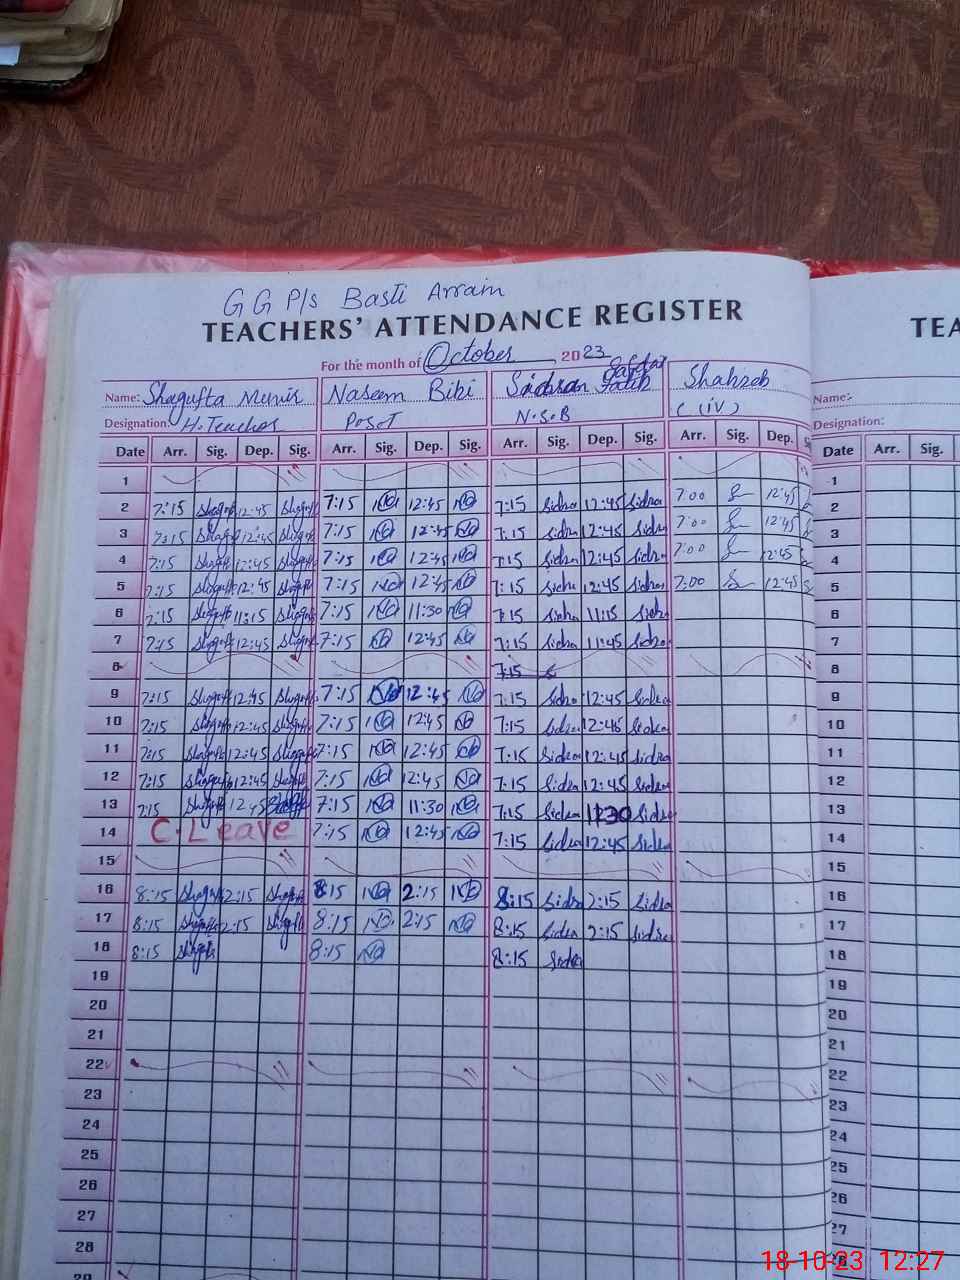 G G P/s Basti Arrain
TEACHERS' ATTENDANCE REGISTER
TEA
For the month of October 2023
Name: Shagufta Munir Naseem Bibi Shahzeb
Name:
Designation: H. Teacher P.S.T N.S.B (iv)
Designation:
Date Arr. Sig. Dep. Sig. Arr. Sig. Dep. Sig. Arr. Sig. Dep. Sig. Arr. Sig. Dep. Date Arr. Sig.
1 1
2 7:15 12:45 7:15 12:45 7:15 Sidra 12:45 Sidra 7:00 12:45 2
3 7:15 12:45 7:15 12:45 7:15 Sidra 12:45 Sidra 7:00 12:45 3
4 7:15 12:45 7:15 12:45 7:15 Sidra 12:45 Sidra 7:00 12:45 4
5 7:15 12:45 7:15 12:45 7:15 Sidra 12:45 Sidra 7:00 12:45 5
6 7:15 11:15 7:15 11:30 7:15 Sidra 11:15 Sidra 6
7 7:15 12:45 7:15 12:45 7:15 Sidra 11:45 Sidra 7
8 7:15 8
9 7:15 12:45 7:15 12:45 7:15 Sidra 12:45 Sidra 9
10 7:15 12:45 7:15 12:45 7:15 Sidra 12:45 Sidra 10
11 7:15 12:45 7:15 12:45 7:15 Sidra 12:45 Sidra 11
12 7:15 12:45 7:15 12:45 7:15 Sidra 12:45 Sidra 12
13 7:15 12:45 7:15 11:30 7:15 Sidra 1130 Sidra 13
14 C. Leave 7:15 12:45 7:15 Sidra 12:45 Sidra 14
15 15
16 8:15 2:15 8:15 2:15 8:15 Sidra 2:15 Sidra 16
17 8:15 2:15 8:15 2:15 8:15 Sidra 2:15 Sidra 17
18 8:15 8:15 8:15 Sidra 18
19 19
20 20
21 21
22 22
23 23
24 24
25 25
26 26
27 27
28
29
18-10-23 12:27